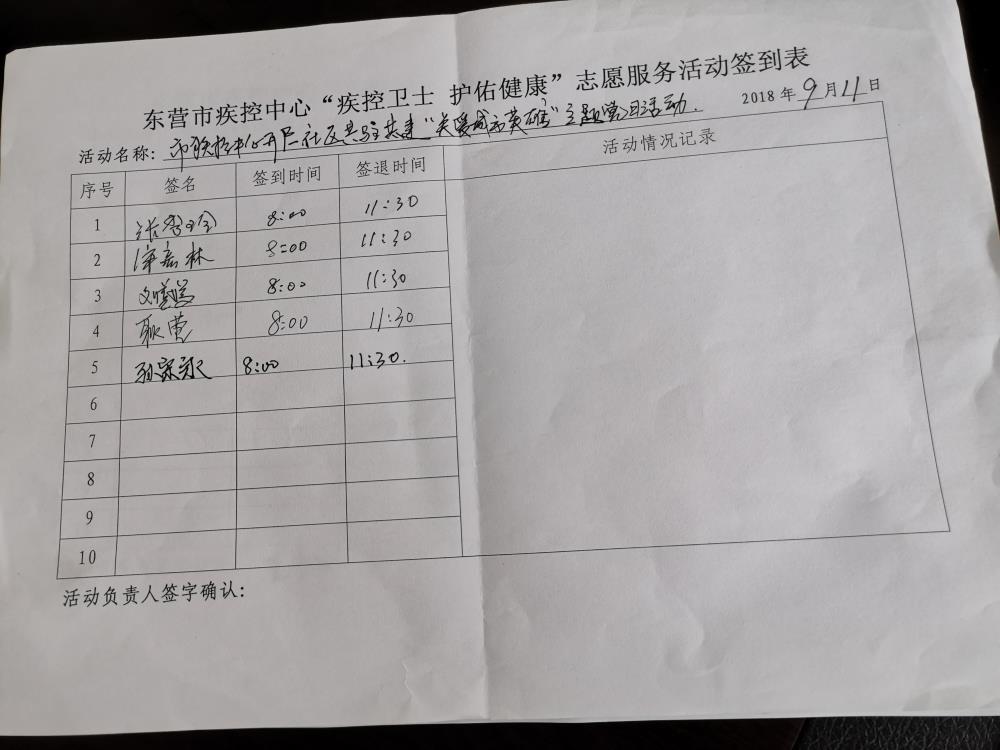 东营市疾控中心“疾控卫士 护佑健康”志愿服务活动签到表
2018年9月11日
活动名称：市疾控中心开展社区共驻共建“关爱城市英雄”主题党日活动.
序号 签名 签到时间 签退时间 活动情况记录
1 8:00 11:30
2 林 8:00 11:30
3 刘 8:00 11:30
4 耿营 8:00 11:30
5 孙 8:00 11:30.
6
7
8
9
10
活动负责人签字确认：